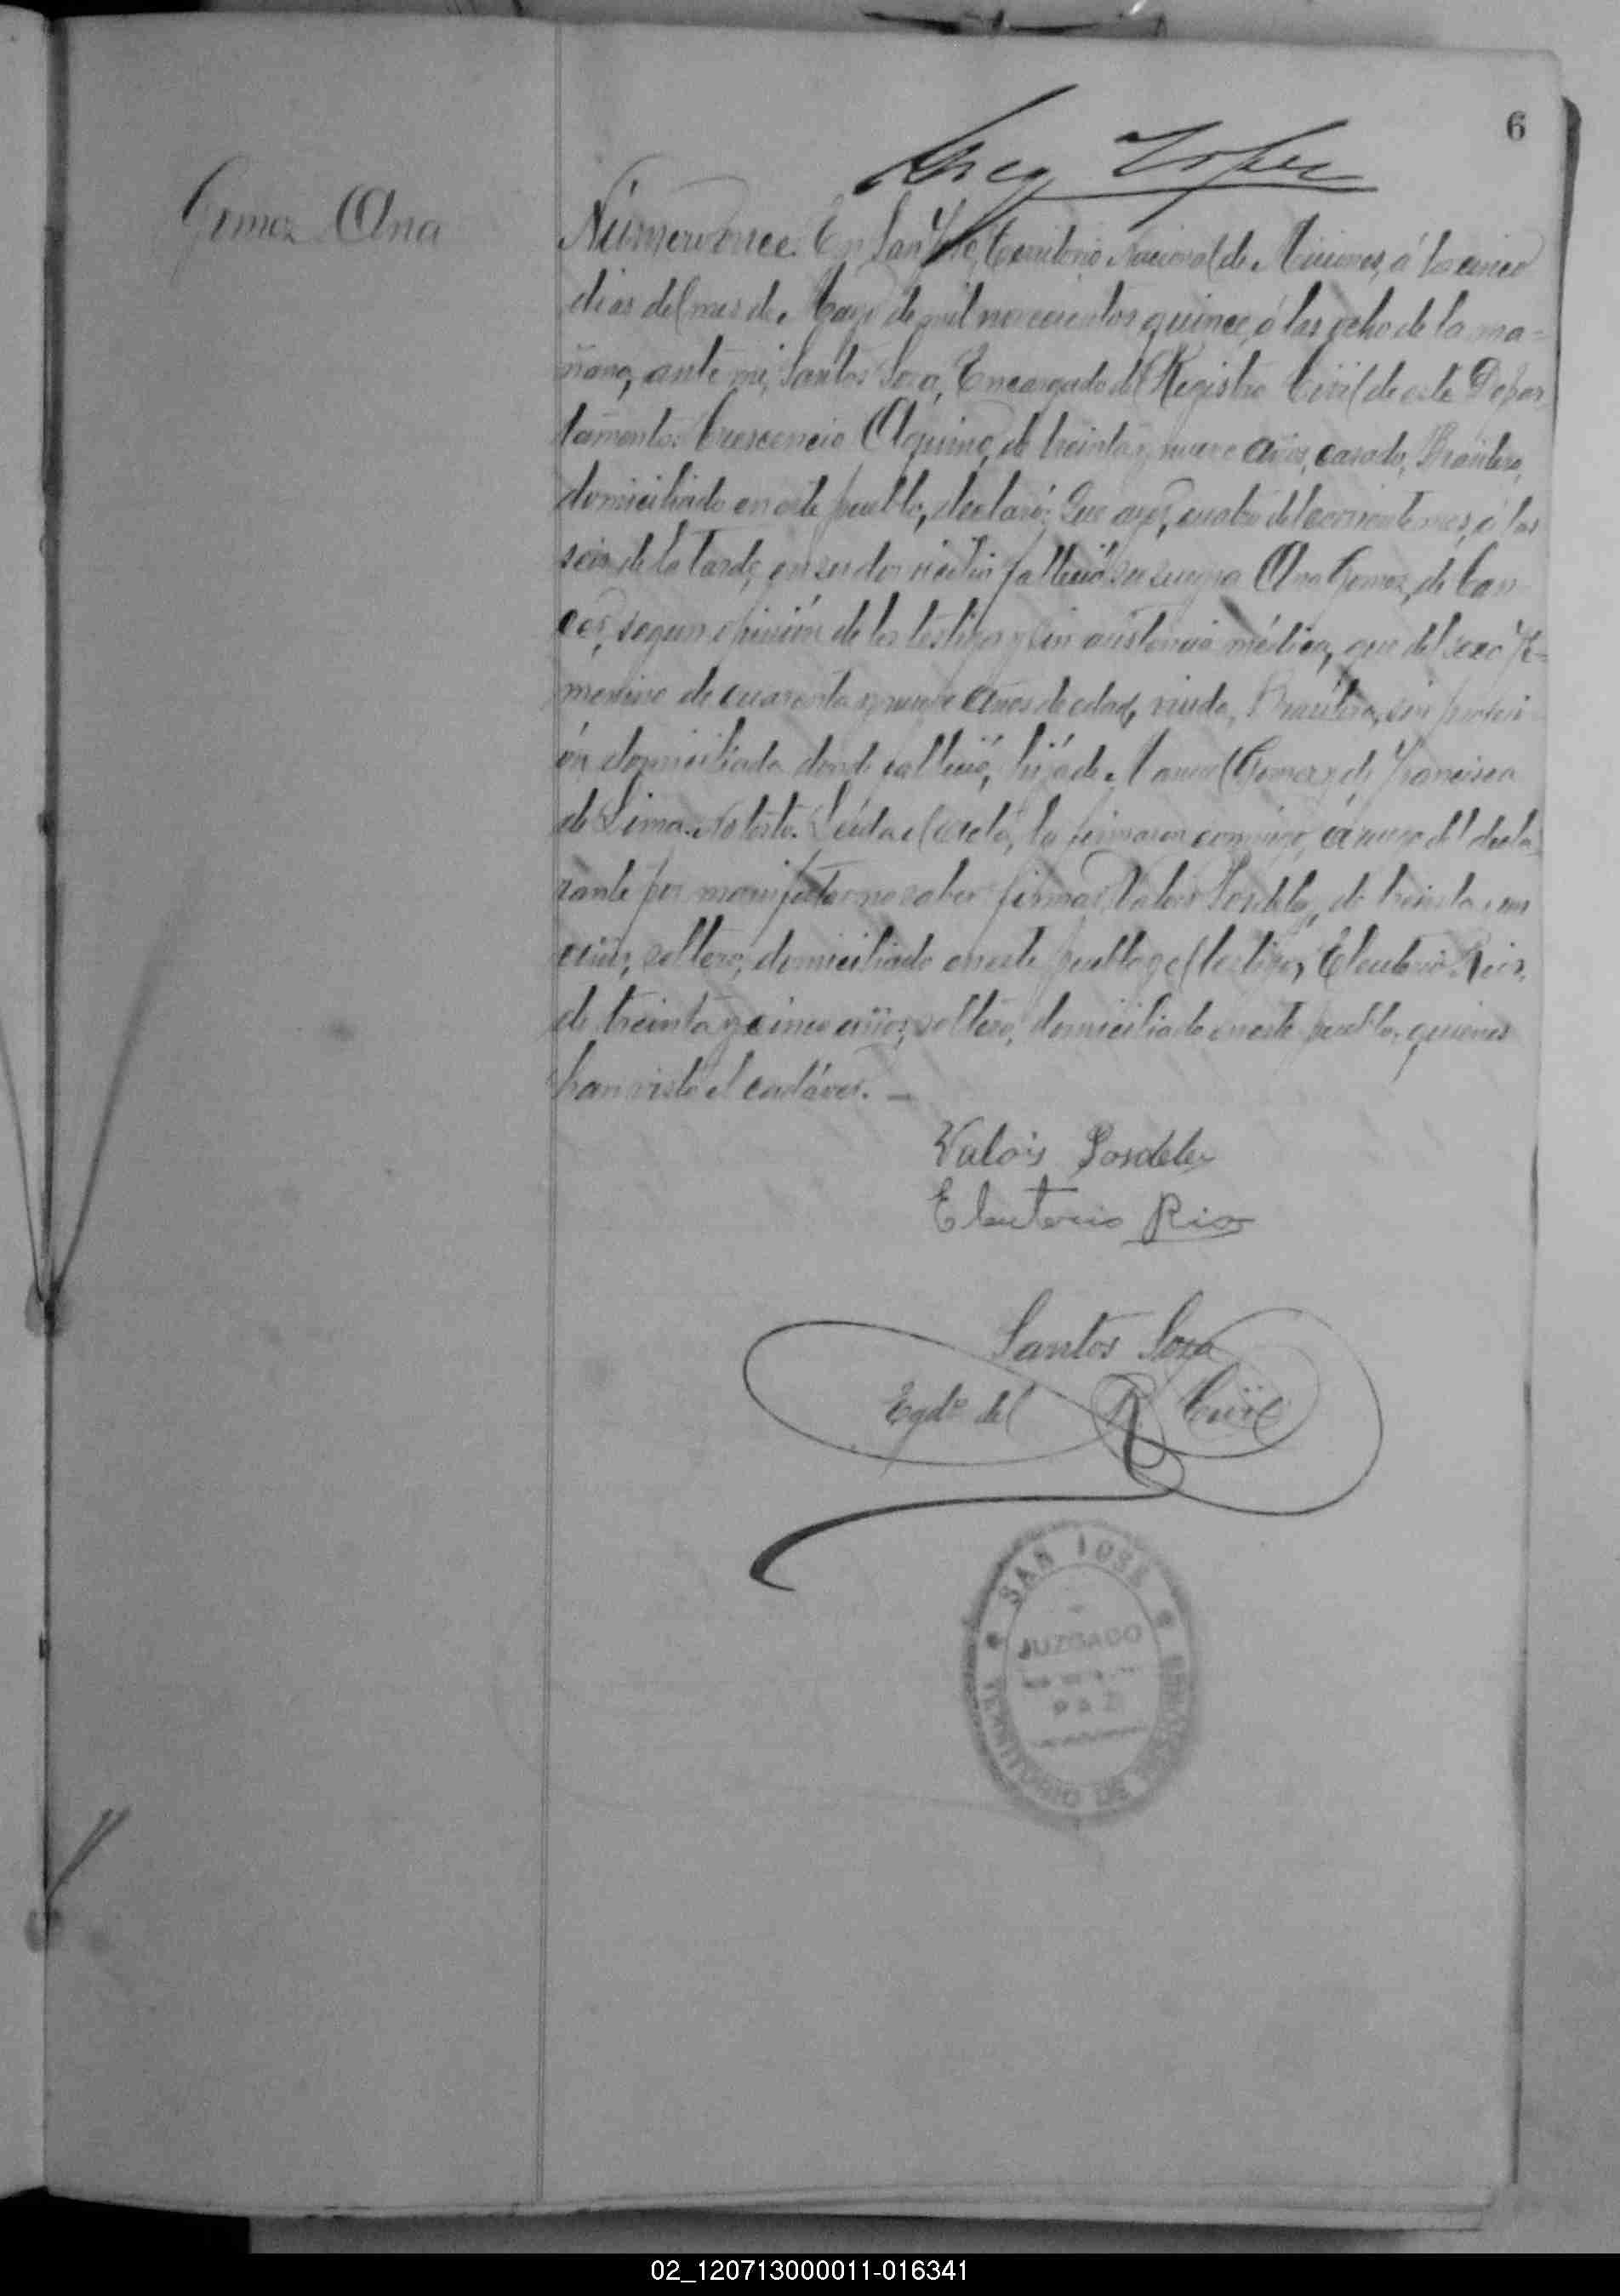 6
Greg Lopez
Gomez Ana
Número once. En San José, Territorio Nacional de Misiones, á los cinco
dias del mes de Mayo de mil novecientos quince, á las ocho de la ma-
ñana, ante mi, Santos Sosa, Encargado del Registro Civil de este Depar
tamento: Crescencio Aquino, de treinta y nueve años, casado, Brasilero,
domiciliado en este pueblo, declaró: Que ayer, cuatro del corriente mes, á las
seis de la tarde, en su domicilio falleció su suegra Ana Gomez, de Can-
cer, segun opinión de los testigos y sin asistencia médica, que del sexo fe-
menino de cuarenta y nueve años de edad, viuda, Brasilera, sin profesi-
ón domiciliada donde falleció, hija de Manuel Gomez y de Francisca
de Lima. No testo. Leida el acta, la firmaron conmigo, á ruego del decla-
rante por manifestar no saber firmar, Valois de treinta un
años, soltero, domiciliado en este pueblo y el testigo, Eleuterio Rios,
de treinta y cinco años, soltero, domiciliado en este pueblo, quienes
han visto el cadáver. —
Valois
Eleuterio Rios
Santos Sosa
Egdo. del R Civil
SAN JOSE
JUZGADO
PAZ
TERRITORIO DE MISIONES
02_120713000011-016341